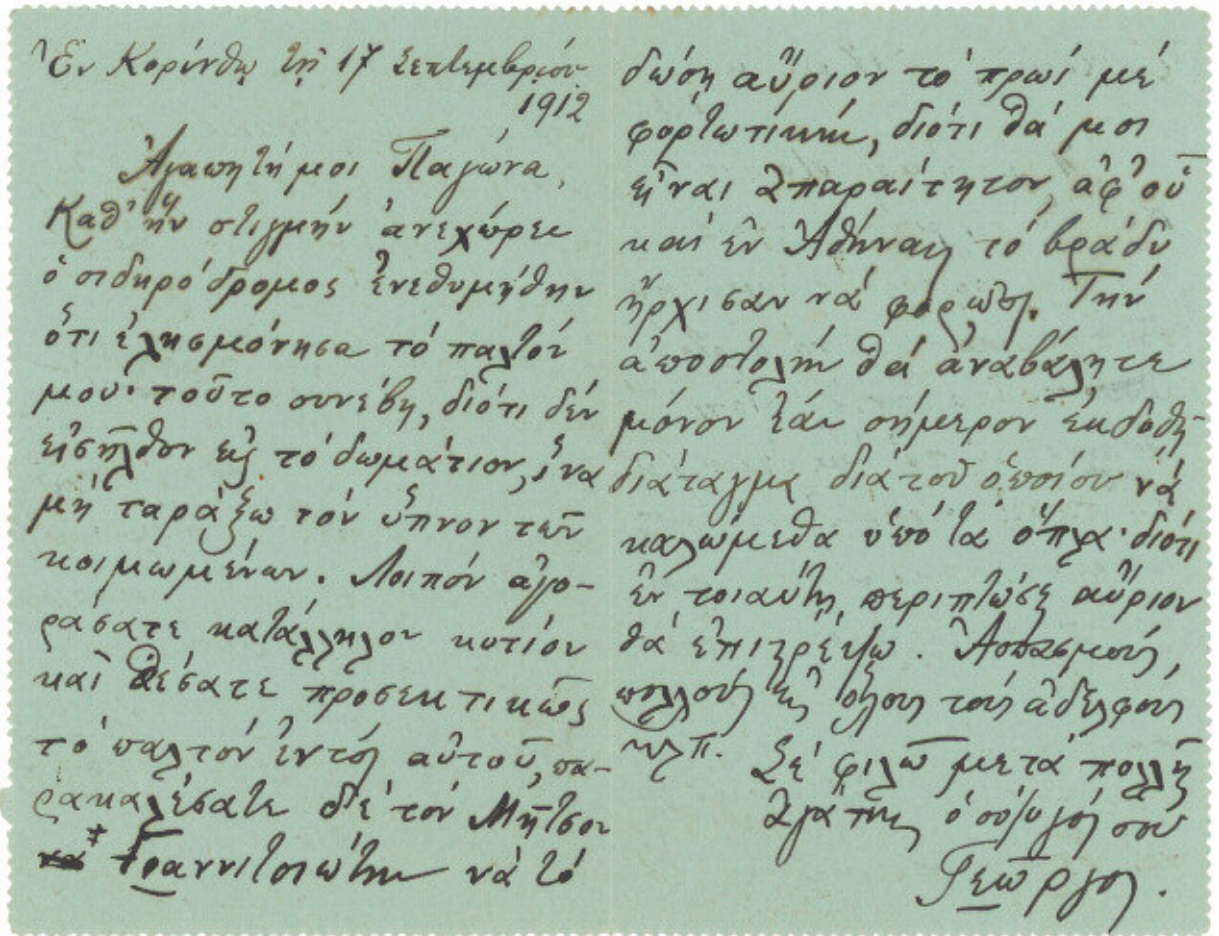 Ἐν Κορίνθῳ τῇ 17 Σεπτεμβρίου
1912
Ἀγαπητή μοι Παγώνα,
Καθ' ἥν στιγμήν ἀνεχώρει
ὁ σιδηρόδρομος ἐνεθυμήθην
ὅτι ἐλησμόνησα τό παλτόν
μου· τοῦτο συνέβη, διότι δέν
εἰσῆλθον εἰς τό δωμάτιον, ἵνα
μή ταράξω τόν ὕπνον τῶν
κοιμωμένων. Λοιπόν ἀγο-
ράσατε κατάλληλον κυτίον
καί θέσατε προσεκτικῶς
τό παλτόν ἐντός αὐτοῦ, πα-
ρακαλέσατε δέ τόν Μῆτσον
Γραννιτσιώτην νά τό
δώσῃ αὔριον τό πρωί μέ
φορτωτικήν, διότι θά μοι
εἶναι ἀπαραίτητον, ἀφ' οὗ
καί ἐν Ἀθήναις τό βράδυ
ἤρχισαν νά φορῶσι. Τήν
ἀποστολήν θά ἀναβάλητε
μόνον ἐάν σήμερον ἐκδοθῇ
διάταγμα διά τοῦ ὁποίου νά
καλώμεθα ὑπό τά ὅπλα· διότι
ἐν τοιαύτῃ περιπτώσει αὔριον
θά ἐπιστρέψω. Ἀσπασμούς
πολλούς εἰς ὅλους τούς ἀδελφούς
κλπ.
Σέ φιλῶ μετά πολλῆς
ἀγάπης ὁ σύζυγός σου
Γεώργιος.